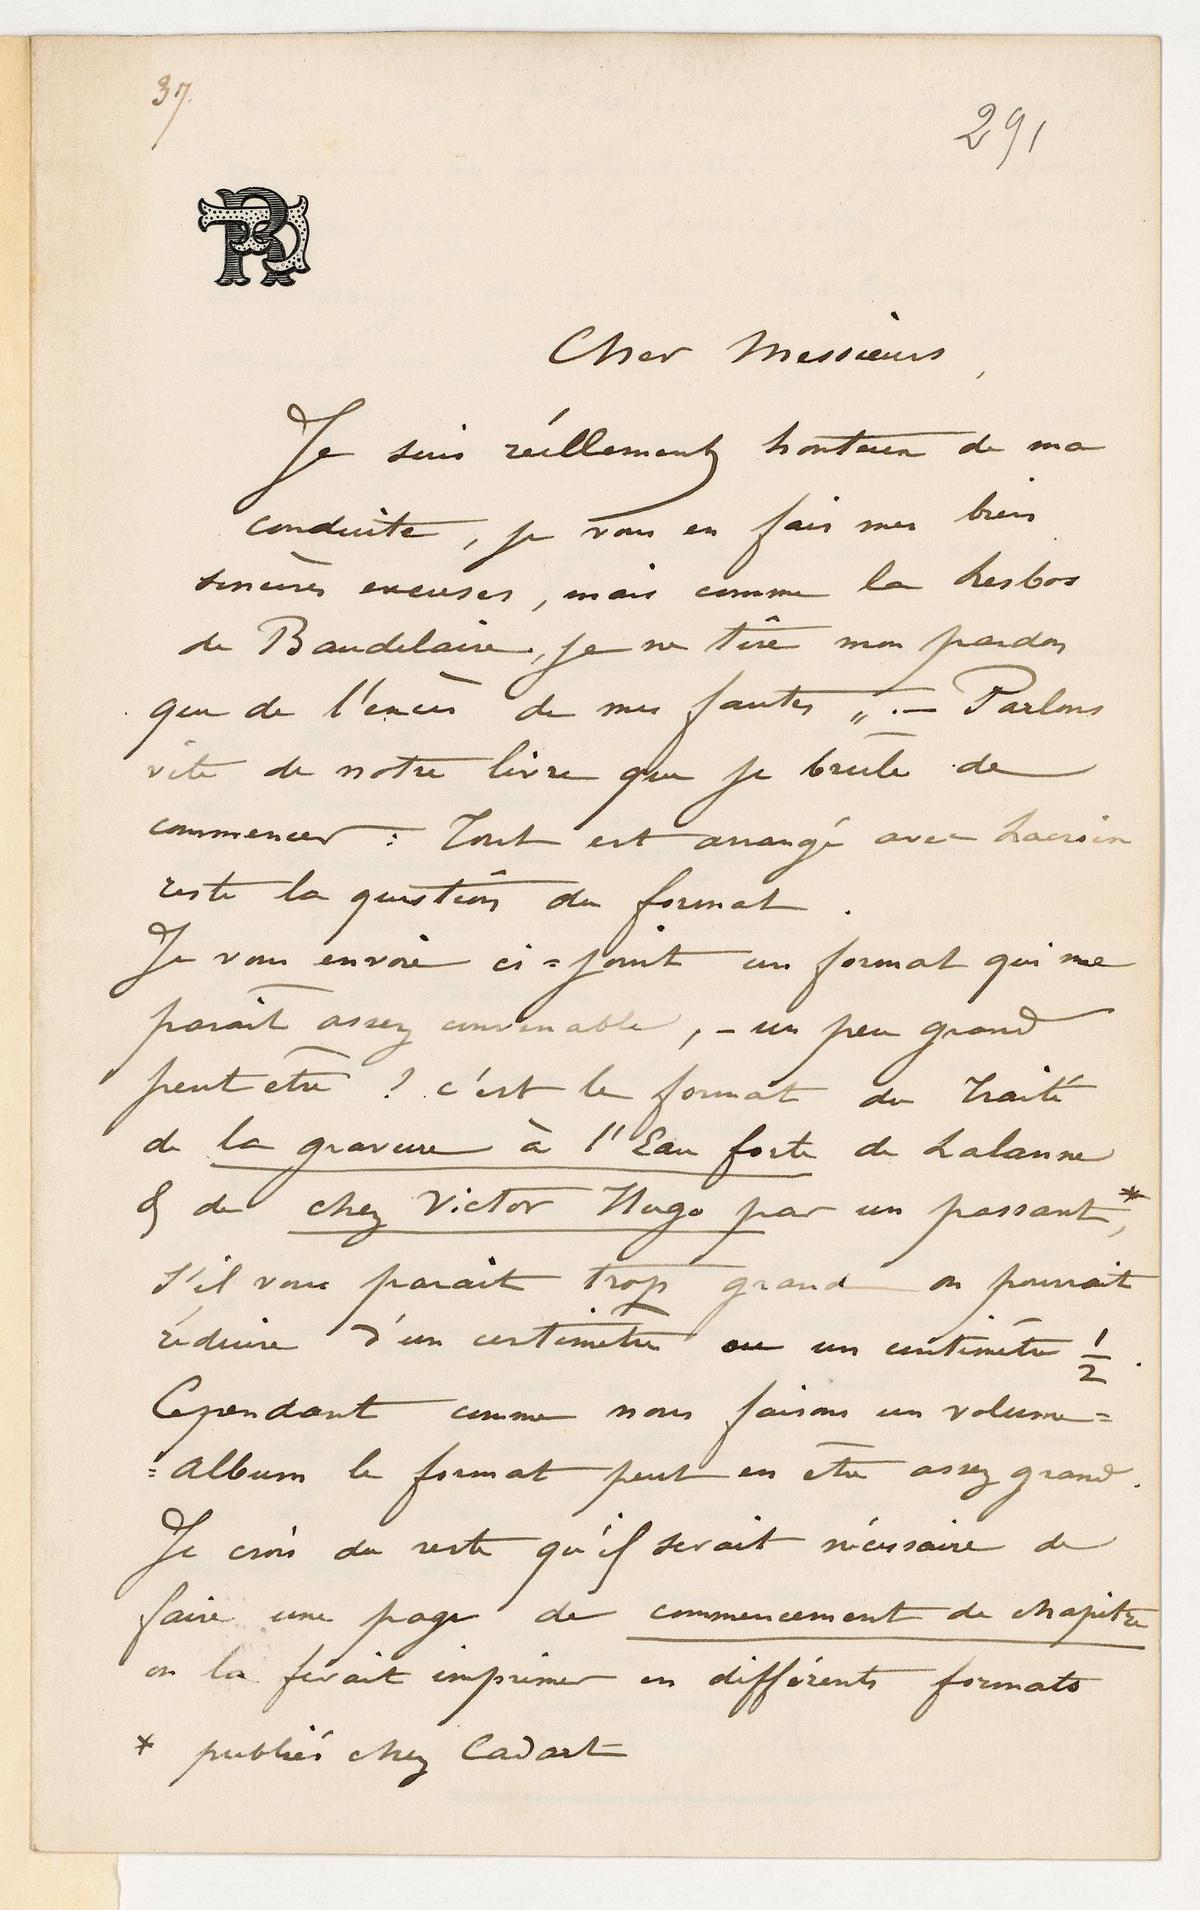 37
291
Cher Messieurs,
Je suis réellement honteux de ma
conduite, je vous en fais mes bien
sincères excuses, mais comme la Lesbos
de Baudelaire, je ne tire mon pardon
que de l'excès de mes fautes „ . — Parlons
vite de notre livre que je brûle de
commencer : Tout est arrangé avec
reste la question du format .
Je vous envoie ci=joint un format qui me
parait assez convenable, – un peu grand
peut être ? c'est le format du Traité
de la gravure à l'Eau forte de Lalanne
& de chez Victor Hugo par un passant,*
s'il vous parait trop grand on pourrait
réduire d'un centimètre ou un centimètre 1/2 .
Cependant comme nous faisons un volume=
=album le format peut en être assez grand.
Je crois du reste qu'il serait nécessaire de
faire une page de commencement de chapitre
on la ferait imprimer en différents formats
* publiés chez Cadart